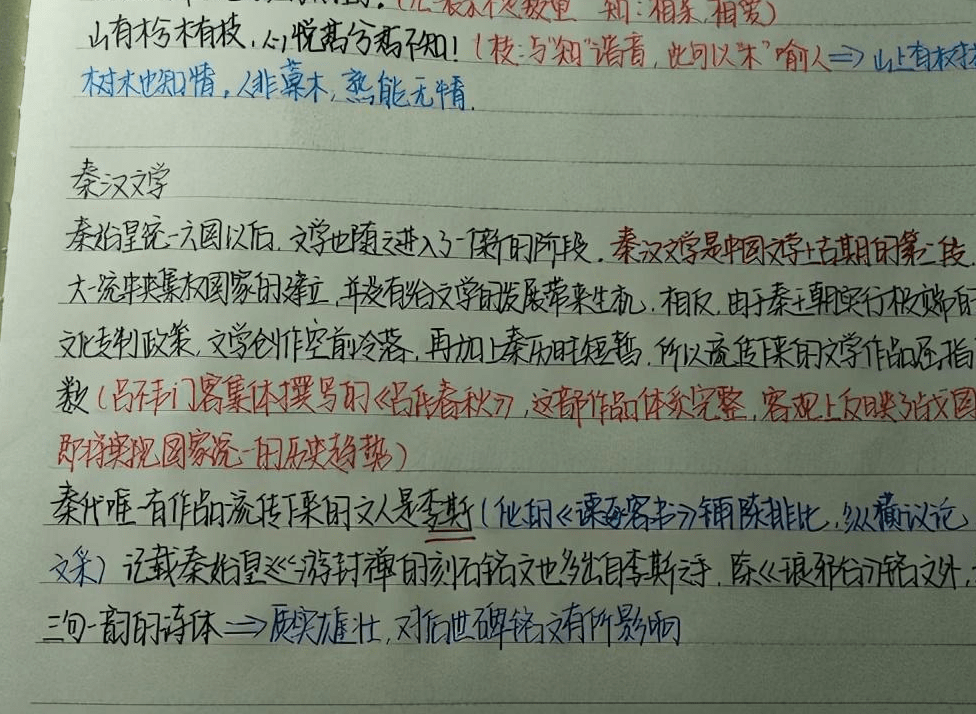 知:相亲,相爱)
山有木兮木有枝,心悦君兮君不知!(枝:与"知"谐音,此句以"木"喻人⇒山上有树木
树木也知情,人非草木,孰能无情.
秦汉文学
秦始皇统一六国以后,文学也随之进入了一个新的阶段.秦汉文学是中国文学上古期的第二段.
大一统中央集权国家的建立,并没有给文学的发展带来生机,相反,由于秦王朝实行极端的
文化专制政策,文学创作空前冷落,再加上秦历时短暂,所以流传下来的文学作品屈指
数(吕不韦门客集体撰写的《吕氏春秋》,这部作品体系完整,客观上反映了战国
即将实现国家统一的历史趋势)
秦代唯一有作品流传下来的文人是李斯(他的《谏逐客书》铺陈排比,纵横议论
文采)记载秦始皇巡游封禅的刻石铭文也多出自李斯之手,除《琅邪台》铭文外,
三句一韵的诗体⇒质实雄壮,对后世碑铭文有所影响